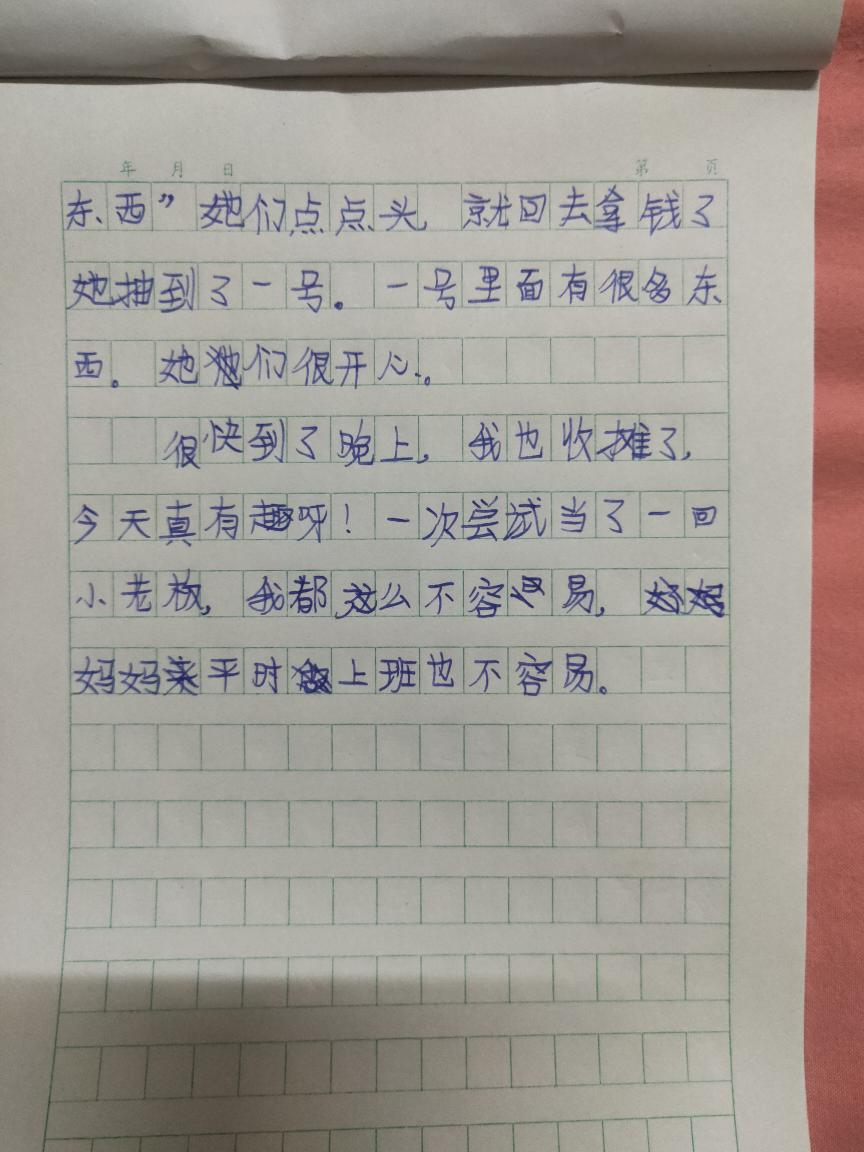 年 月 日 第 页
东西”她们点点头，就回去拿钱了
她抽到了一号。一号里面有很多东
西。她们很开心。
很快到了晚上，我也收摊了，
今天真有趣呀！一次尝试当了一回
小老板，我都这么不容易，
妈妈平时上班也不容易。